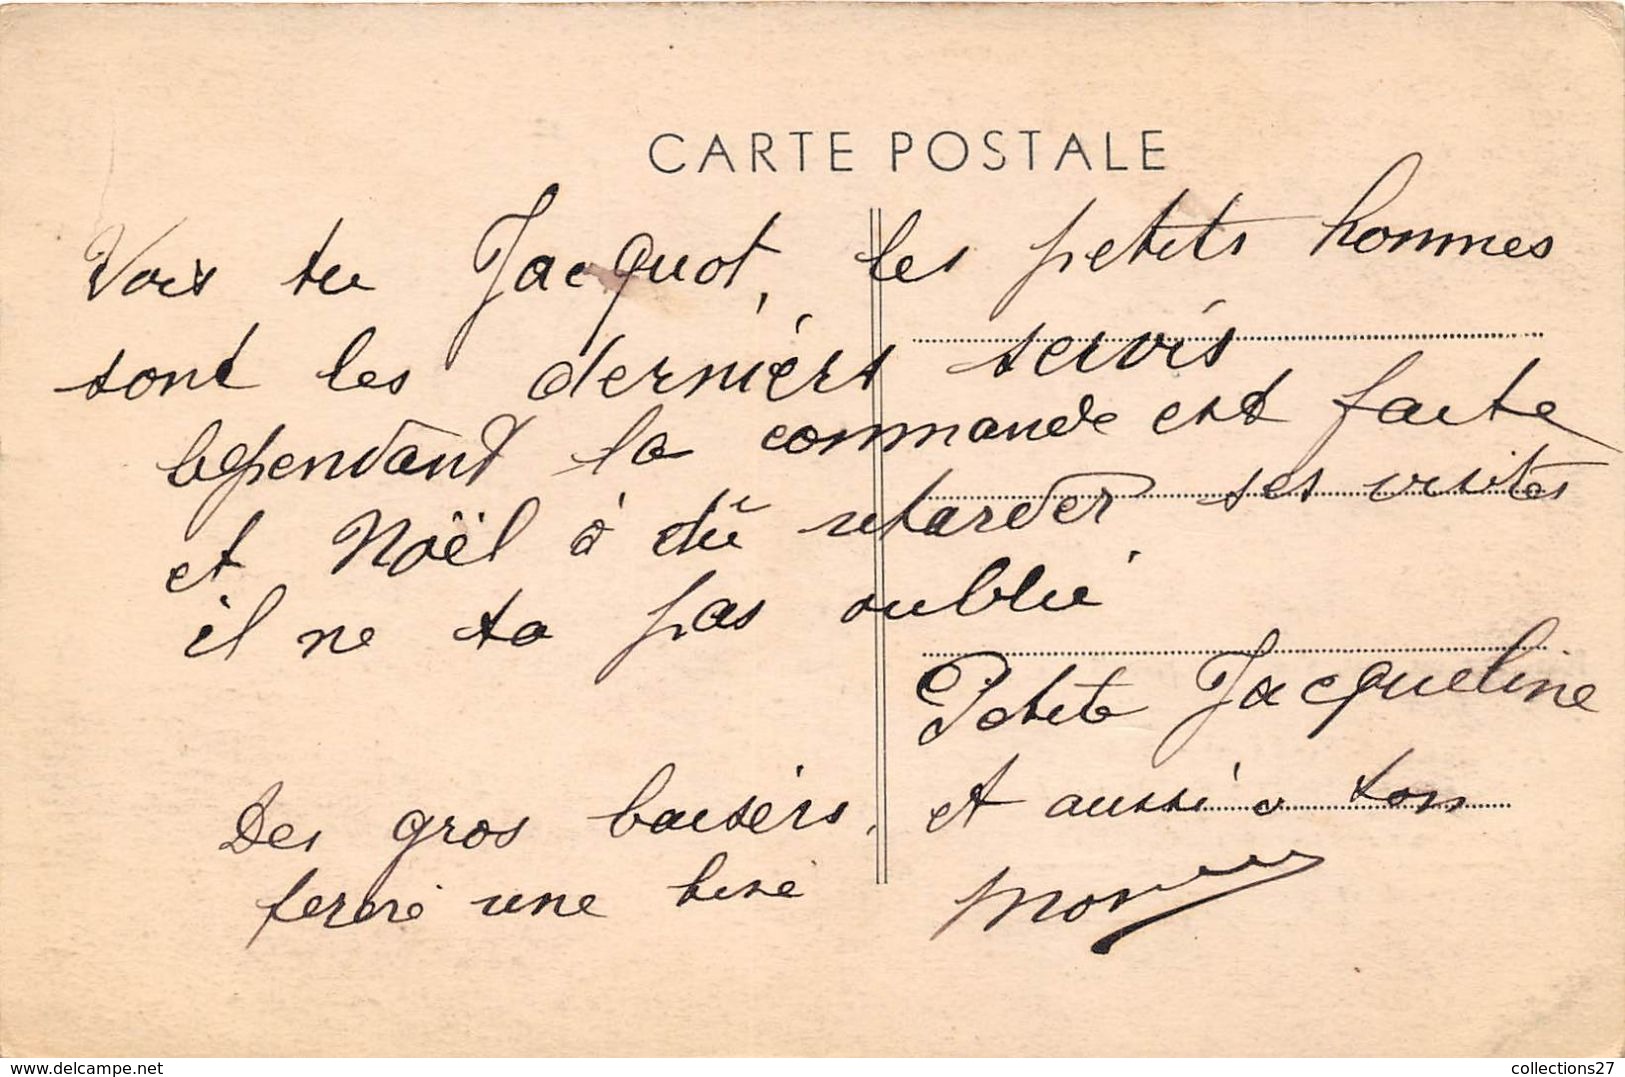 CARTE POSTALE
Vois tu Jacquot, les petits hommes
sont les derniérs servis
Cependant la commande est faite
et Noël à dû retarder ses visites
il ne ta pas oublié
Petite Jacqueline
Des gros baisérs, et aussi a ton
une bise
www.delcampe.net
collections27